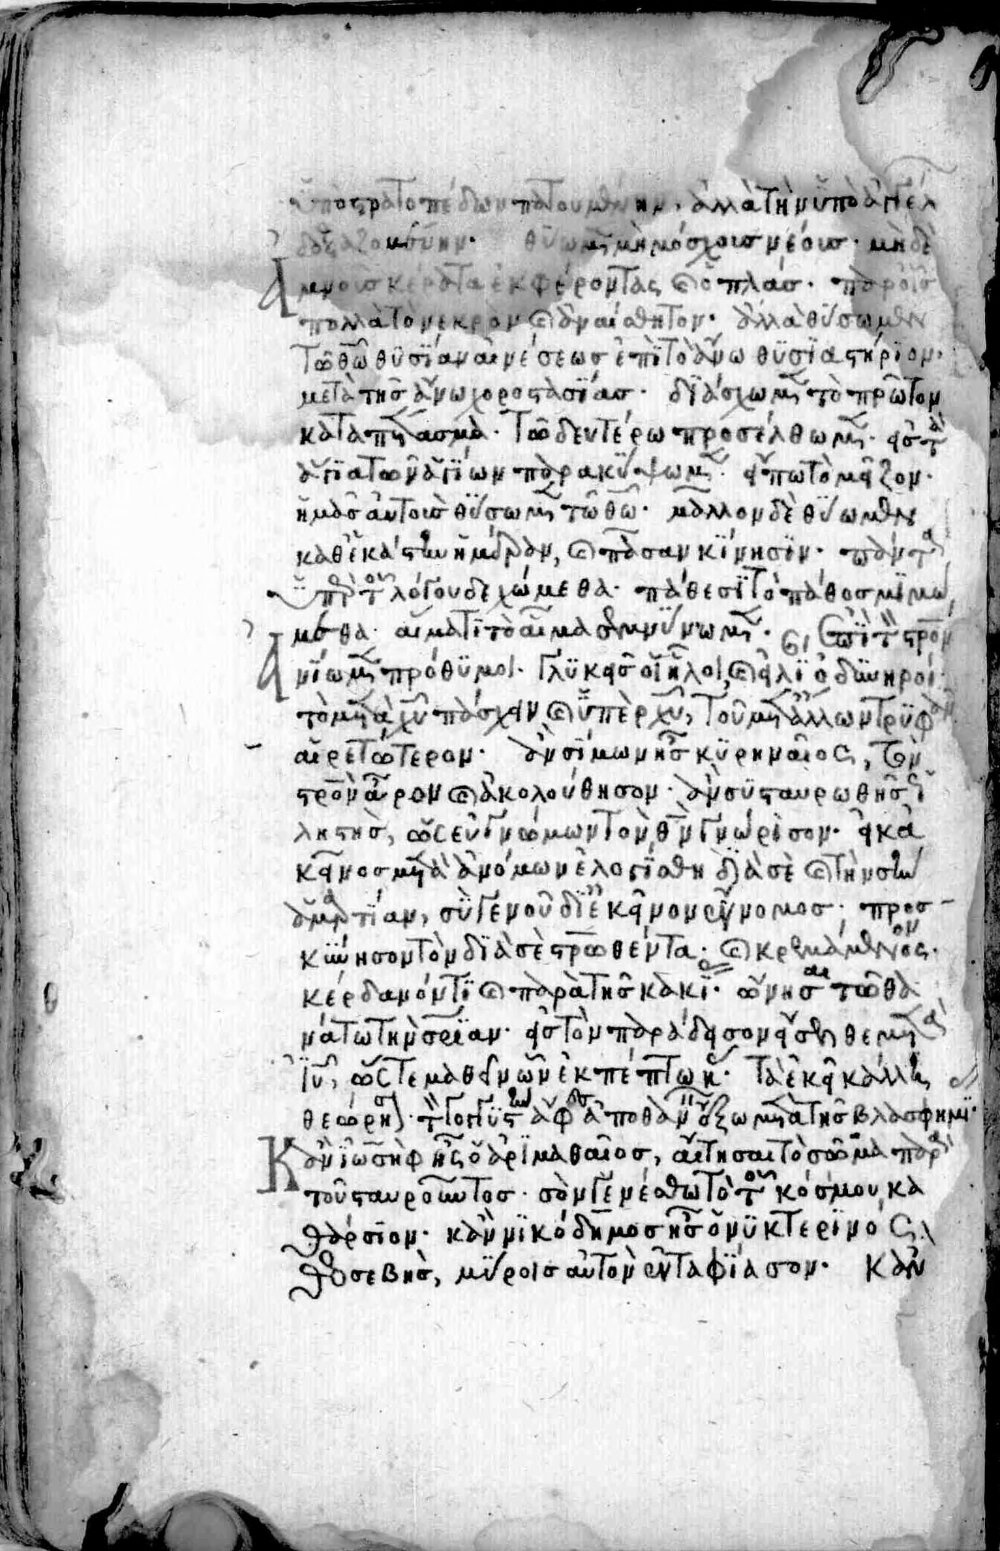 ὑπὸ στρατοπέδων πατουμένην· ἀλλὰ τὴν ὑπὸ ἀγγέλ
δοξαζομένην· θύσωμεν μὴ μόσχους νέους· μὴ δὲ
ἀμνοὺς κέρατα ἐκφέροντας καὶ ὁπλάς· παρ' οἷς
πολλὰ τὸ νεκρὸν καὶ ἀναίσθητον· ἀλλὰ θύσωμεν
τῶ θῶ θυσίαν αἰνέσεως ἐπὶ τὸ ἄνω θυσιαστήριον·
μετὰ τῆς ἄνω χοροστασίας· διάσχωμεν τὸ πρῶτον
καταπέτασμα· τῶ δευτέρω προσέλθωμεν· εἰς τὰ
ἅγια τῶν ἁγίων παρακύψωμεν· εἴπω τὸ μεῖζον·
ἡμᾶς αὐτοὺς θύσωμεν τῶ θῶ· μᾶλλον δὲ θύωμεν
καθ' ἑκάστην ἡμέραν, καὶ πᾶσαν κίνησιν· πάντα
ὑπὲρ τοῦ λόγου δεχώμεθα· πάθεσι τὸ πάθος μιμώ
μεθα· αἵματι τὸ αἷμα σεμνύνωμεν· ἐπὶ τὸν στρον
ἀνίωμεν πρόθυμοι· γλυκεῖς οἱ ἧλοι, καὶ εἰ λίαν ὀδυνηροί·
τὸ μετὰ χῦ πάσχειν καὶ ὑπὲρ χῦ, τοῦ μετ' ἄλλων τρυφᾶν
αἱρετώτερον· ἂν σίμων ἦς κυρηναῖος, τὸν
στρον ἆρον καὶ ἀκολούθησον· ἂν συσταυρωθῆς ὡς
ληστής, ὡς εὐγνώμων τὸν θν γνώρισον· εἰ κἀ
κεῖνος μετὰ ἀνόμων ἐλογίσθη διὰ σὲ καὶ τὴν σὴν
ἁμαρτίαν, σὺ γενοῦ δι' ἐκεῖνον ἔννομος· προσ
κύνησον τὸν διὰ σὲ στρωθέντα· καὶ κρεμάμενος·
κέρδανόν τι καὶ παρὰ τῆς κακίας· ὤνησαι τῶ θα
νάτω τὴν σριαν· εἰς τὸν παράδεισον εἴσελθε μετὰ
ιυ, ὥστε μαθεῖν ὧν ἐκπέπτωκας· τὰ ἐκεῖ κάλλη
θεώρησον· τὸν γογγυστὴν ἄφες ἀποθανεῖν ἔξω μετὰ τῆς βλασφημίας·
Κἂν ἰωσὴφ ἦς ὁ ἀπὸ ἀριμαθαίας, αἴτησαι τὸ σῶμα παρὰ
τοῦ σταυροῦντος· σὸν γενέσθω τὸ τοῦ κόσμου κα
θάρσιον· κἂν νικόδημος ἦς ὁ νυκτερινὸς
θεοσεβής, μύροις αὐτὸν ἐνταφίασον· κἂν